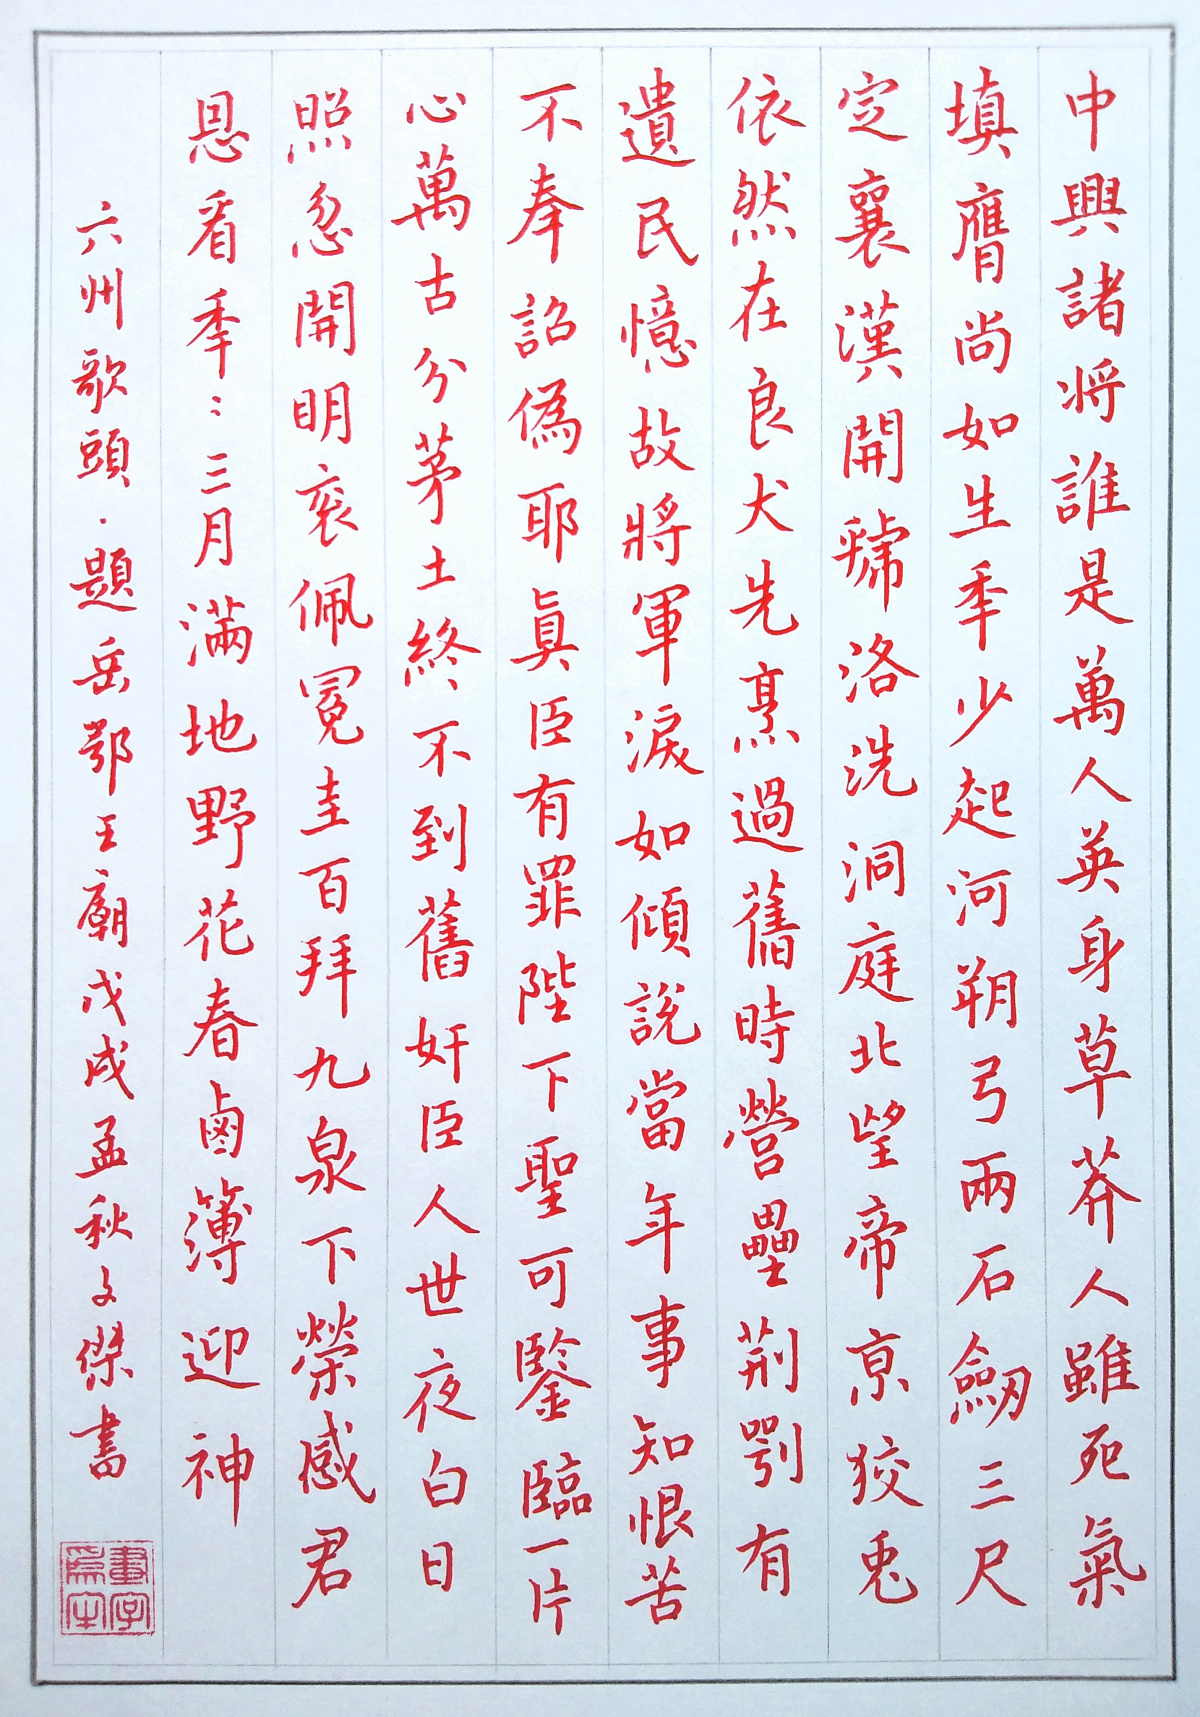 中興諸将誰是萬人英身草莽人雖死氣
填膺尚如生年少起河朔弓兩石劒三尺
定襄漢開虢洛洗洞庭北望帝京狡兎
依然在良犬先烹過舊時營壘荆鄂有
遺民憶故將軍淚如傾說當年事知恨苦
不奉詔偽耶眞臣有罪陛下聖可鑒臨一片
心萬古分茅土終不到舊奸臣人世夜白日
照忽開明衮佩冕圭百拜九泉下榮感君
恩看年〻三月滿地野花春鹵簿迎神
六州歌頭·題岳鄂王廟戊戌孟秋文傑書
畫字
為本